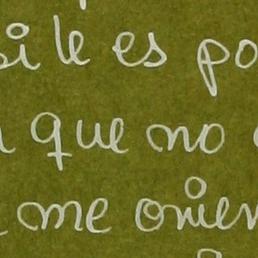 sile es po
que no
me orien